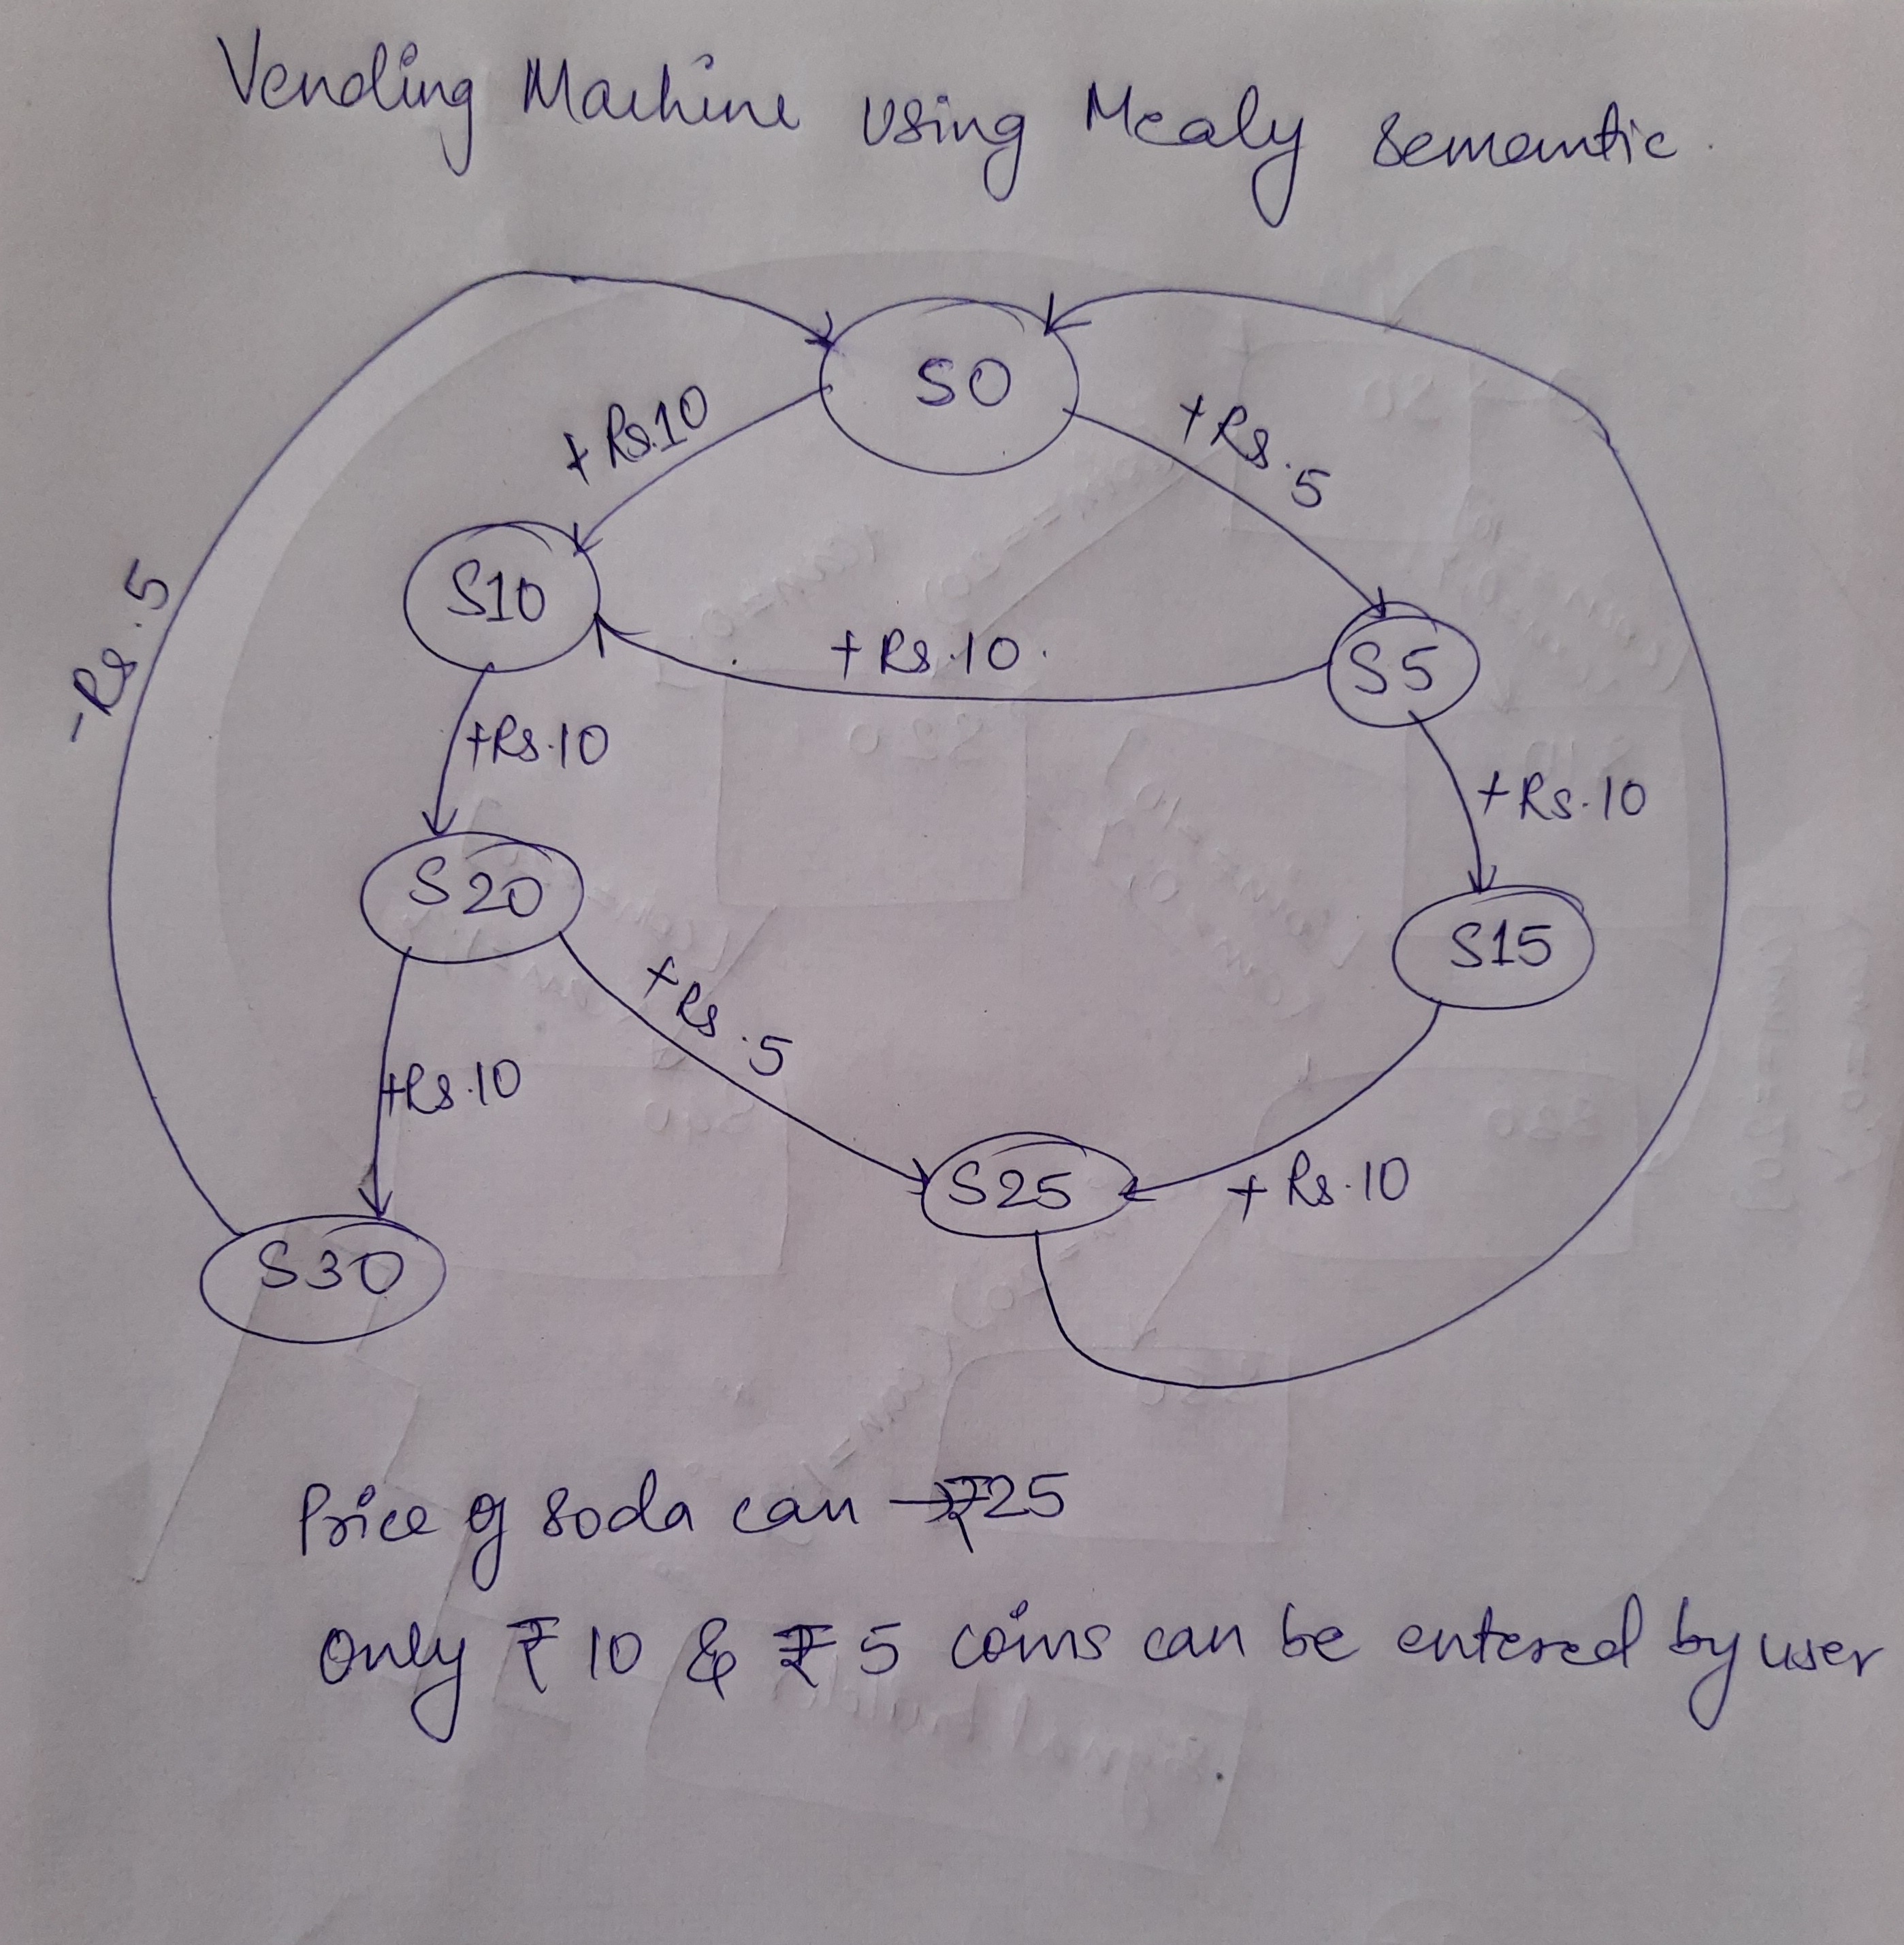 Vending Machine using Mealy semantic.
S0
+ Rs.10
+ Rs.5
S10
- Rs.5
+ Rs.10.
S5
+Rs.10
+Rs.10
S20
S15
+ Rs.5
+Rs.10
S25
+ Rs.10
S30
Price of soda can → ₹25
Only ₹ 10 & ₹ 5 coins can be entered by user